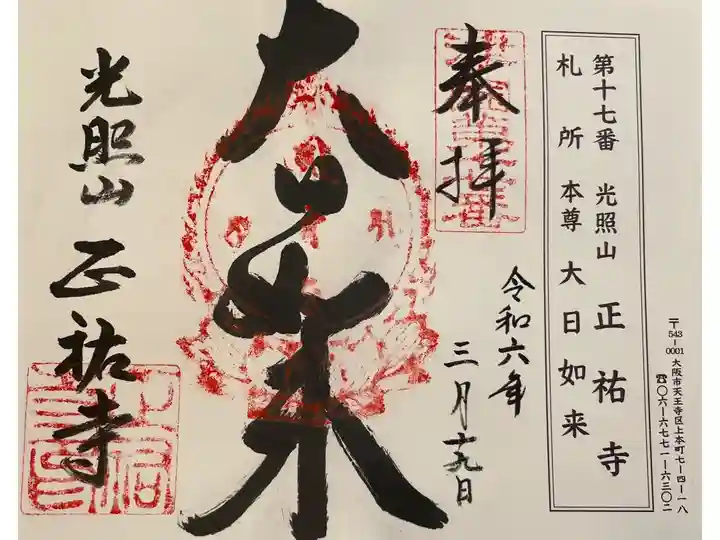 〒543-0001 大阪市天王寺区上本町七ー四ー一八
☎〇六ー六七七一ー六三〇二
第十七番 光照山 正祐寺
札所本尊 大日如来
奉拝
令和六年
三月十九日
大日如来
光照山 正祐寺